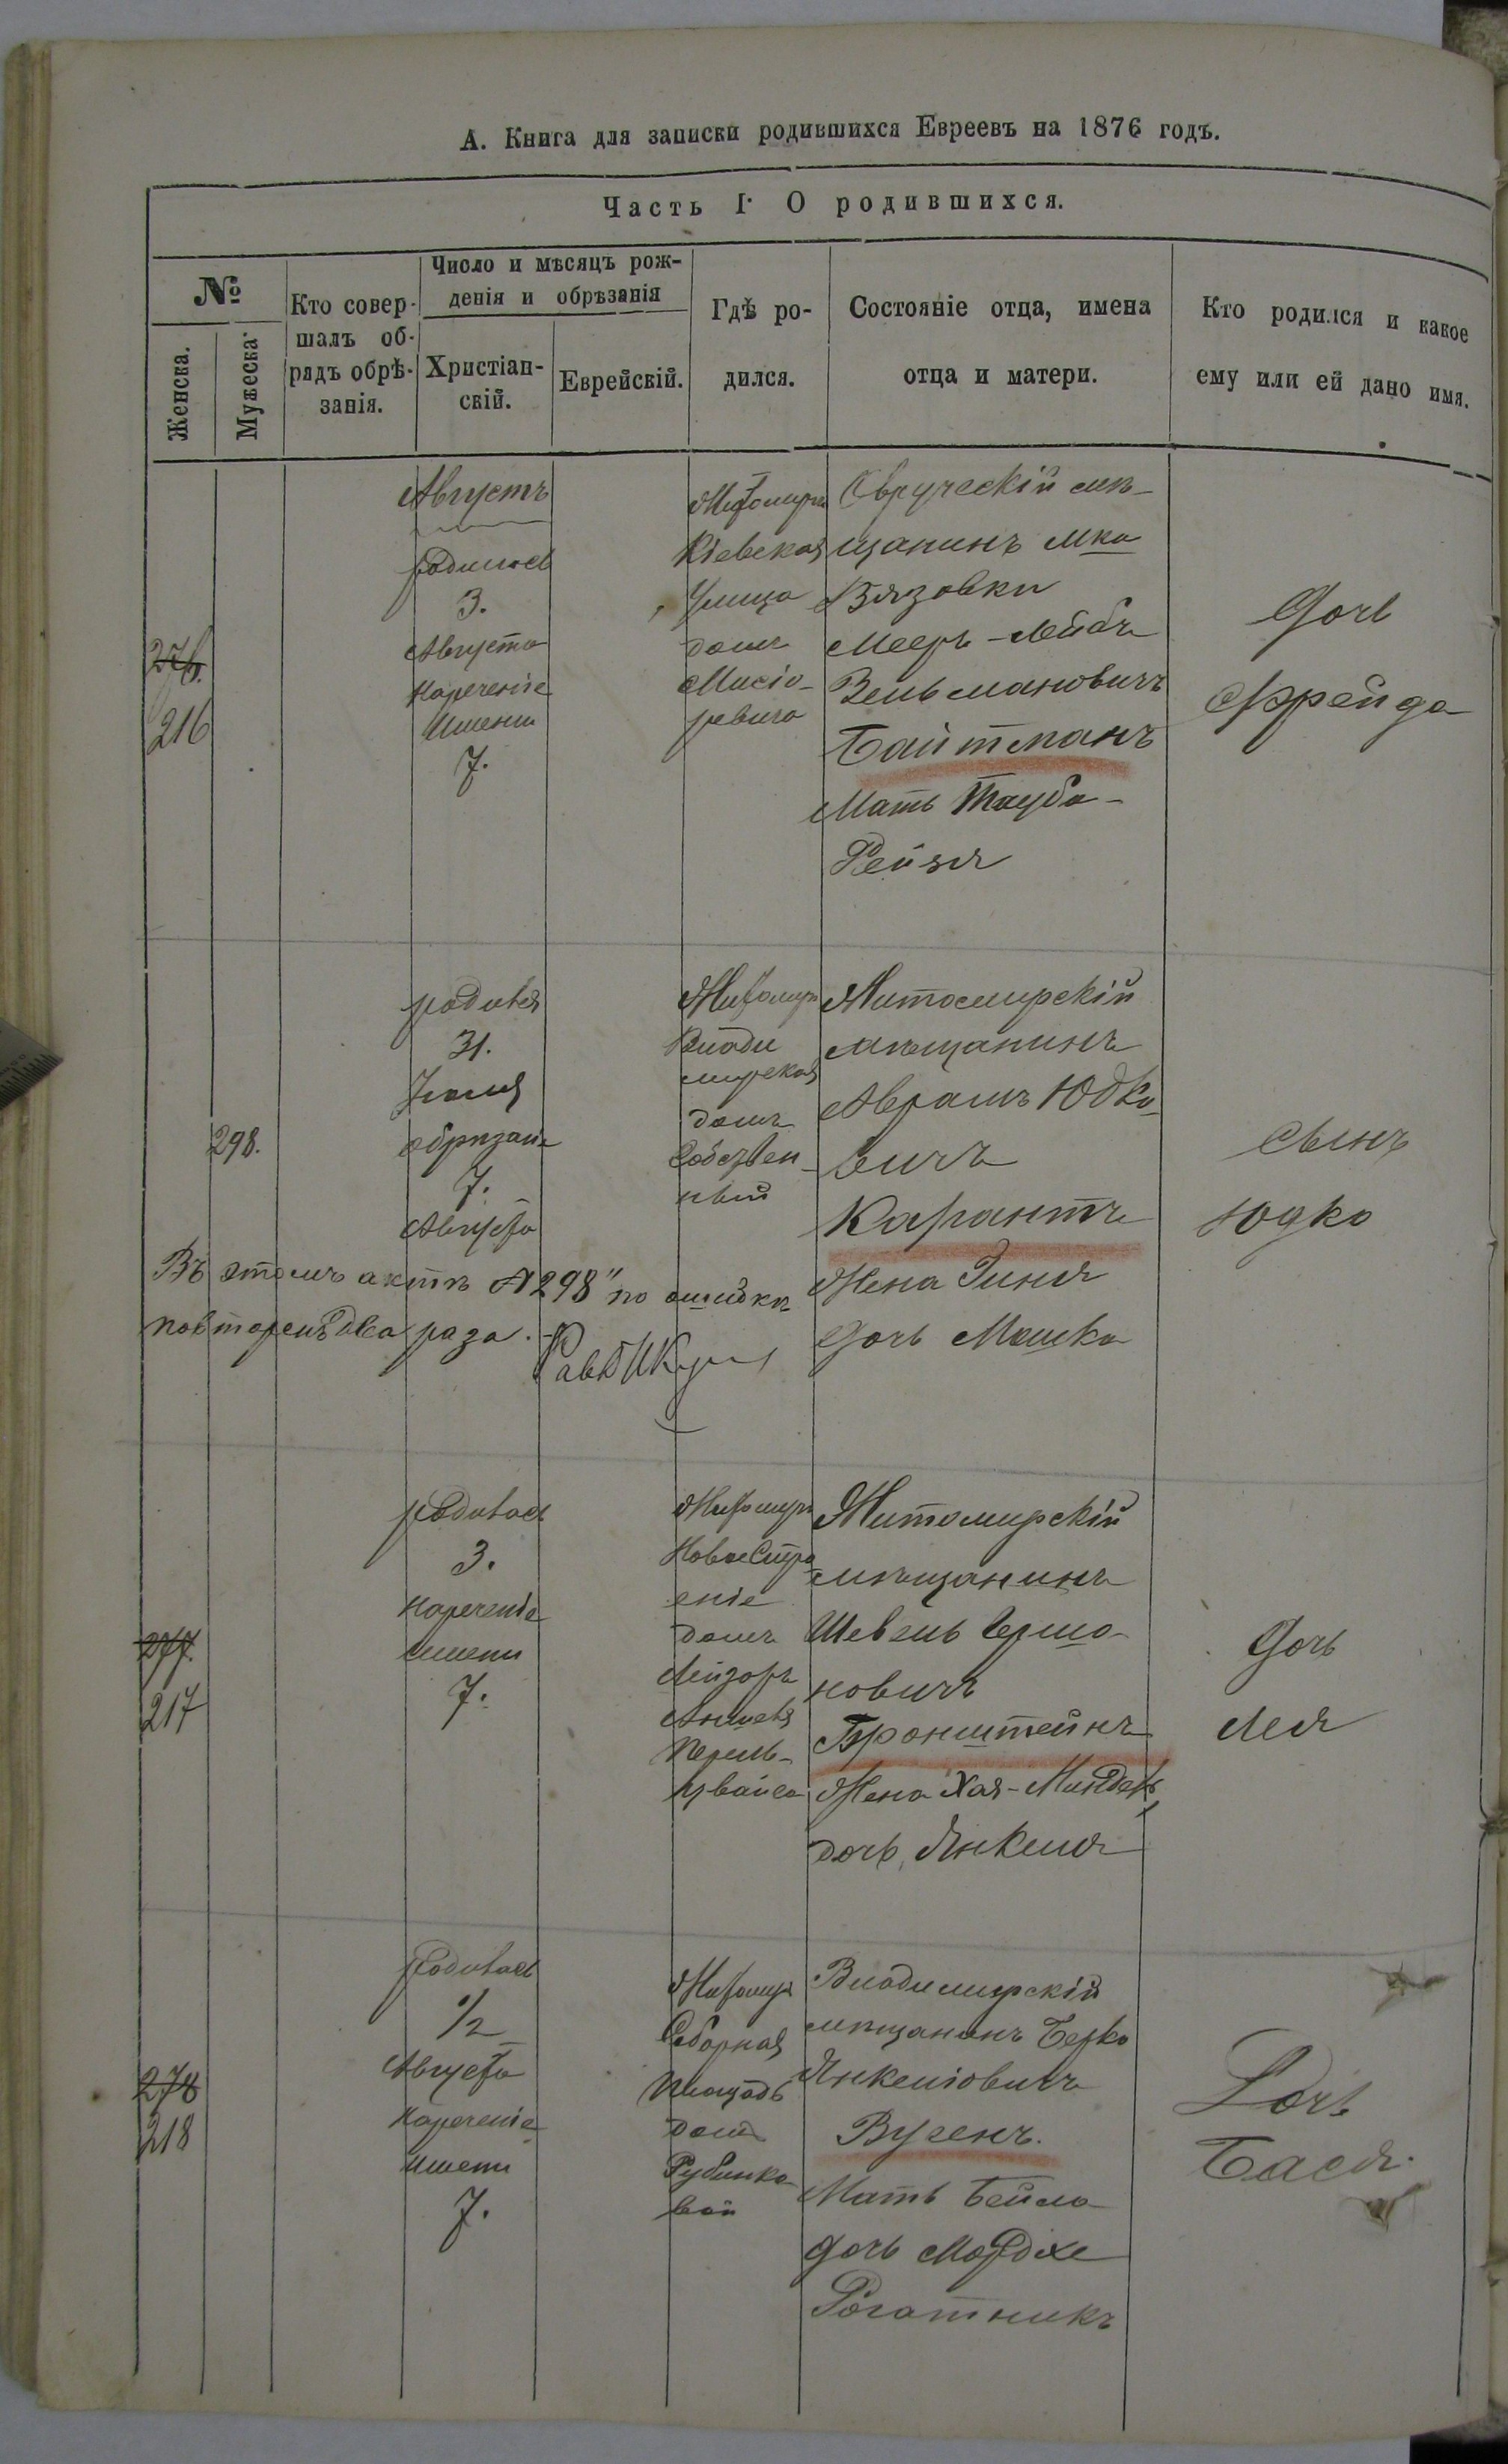 А. Книга для записки родившихся Евреевъ на 1876 годъ.
Часть I. О родившихся.
№
Женска.
Мужеска.
Кто совер-
шалъ об-
рядъ обрѣ-
занія.
Число и мѣсяцъ рож-
денія и обрѣзанія
Христіан-
скій.
Еврейскій.
Гдѣ ро-
дился.
Состояніе отца, имена
отца и матери.
Кто родился и какое
ему или ей дано имя.
276.
216
Августъ
родилась
3.
Августа
Нареченіе
Имени
7.
Житомиръ
Кіевская
Улица
домъ
Овручскій мѣ-
щанинъ мка
Вязовки
Мееръ-Лейбъ
Зельмановичъ
Байтманъ
Мать Тауба-
Рейзя
Дочь
Фрейда
298.
родился
31.
Іюля
обрѣзанъ
7.
Августа
Житомиръ
Влади
мирская
домъ
Собствен-
ный
Житомирскій
мѣщанинъ
Аврамъ Юдко-
вичъ
Карантъ
Жена Зиня
дочь Мошка
сынъ
Юдко
Въ этомъ актѣ №298" по ошибкѣ
повторенъ два раза.
277.
217
родилась
3.
Нареченіе
Имени
7.
Житомиръ
НовоеСтро
еніе
домъ
Лейзоръ
Аншеля
Перель-
цвайса
Житомирскій
мѣщанинъ
Шевель Цершо-
новичъ
Бронштейнъ
Жена Хая-Миндель
дочь Янкеля
Дочь
Лея
278
218
Родилась
1/2
Августа
Нареченіе
Имени
7.
Житомиръ
Соборная
Площадь
домъ
Рубинко-
вой
Владимирскій
мѣщанинъ Берко
Янкеліовичъ
Вугенъ.
Мать Бейла
дочь Мордхе
Рогатникъ
Дочь
Бася.